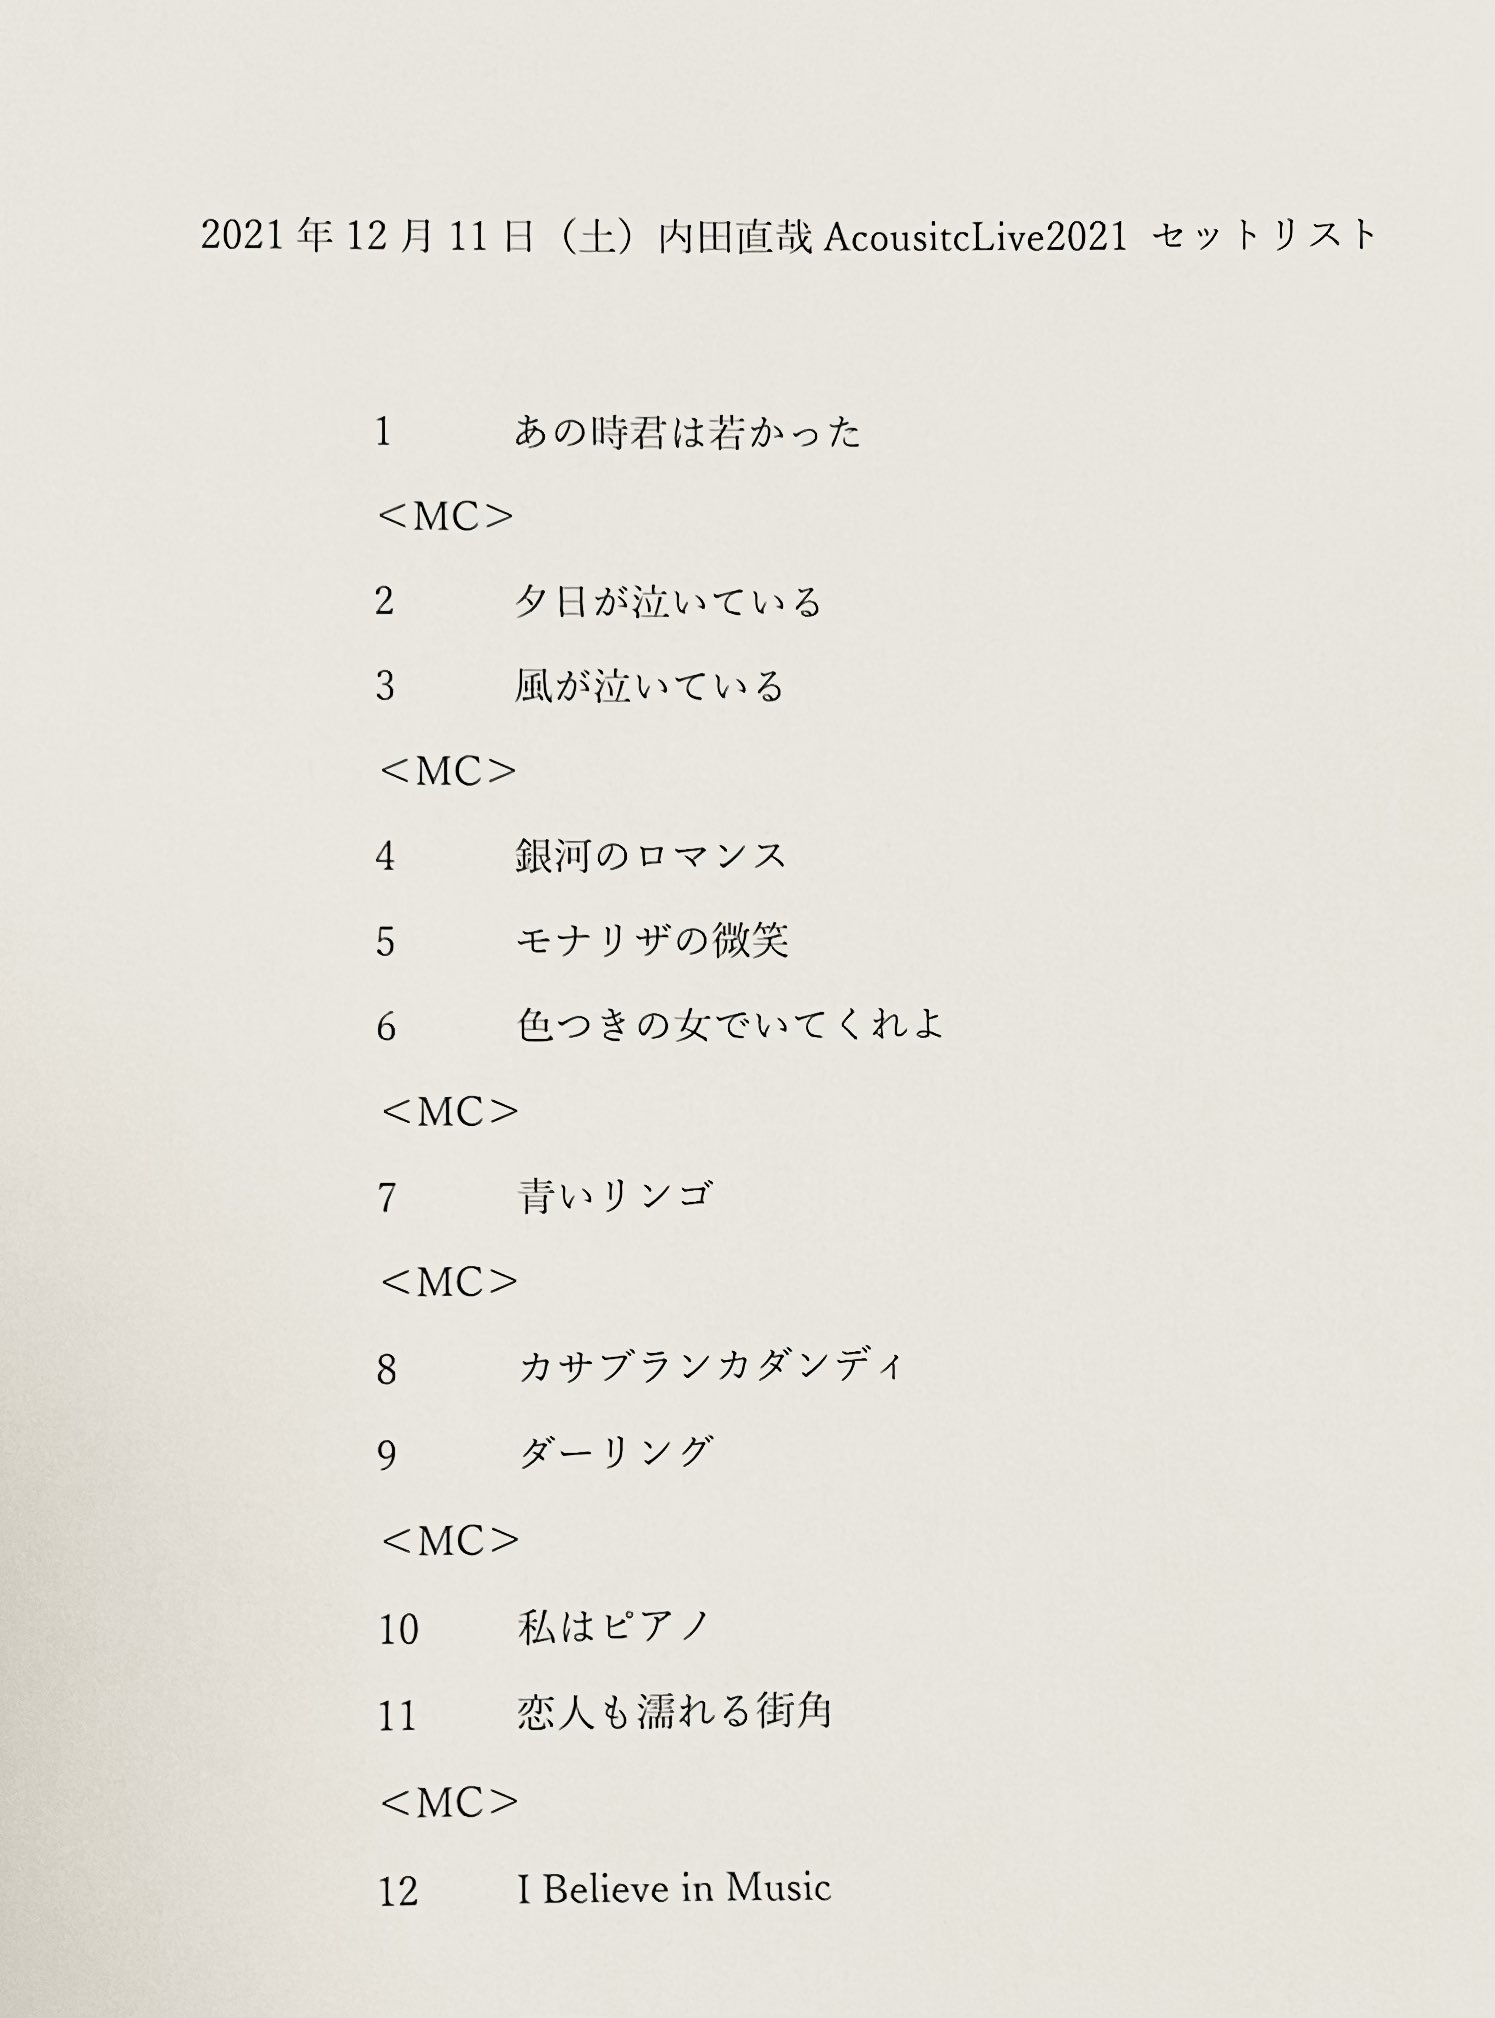 2021年12月11日（土）内田直哉AcousitcLive2021 セットリスト
1 あの時君は若かった
＜MC＞
2 夕日が泣いている
3 風が泣いている
＜MC＞
4 銀河のロマンス
5 モナリザの微笑
6 色つきの女でいてくれよ
＜MC＞
7 青いリンゴ
＜MC＞
8 カサブランカダンディ
9 ダーリング
＜MC＞
10 私はピアノ
11 恋人も濡れる街角
＜MC＞
12 I Believe in Music